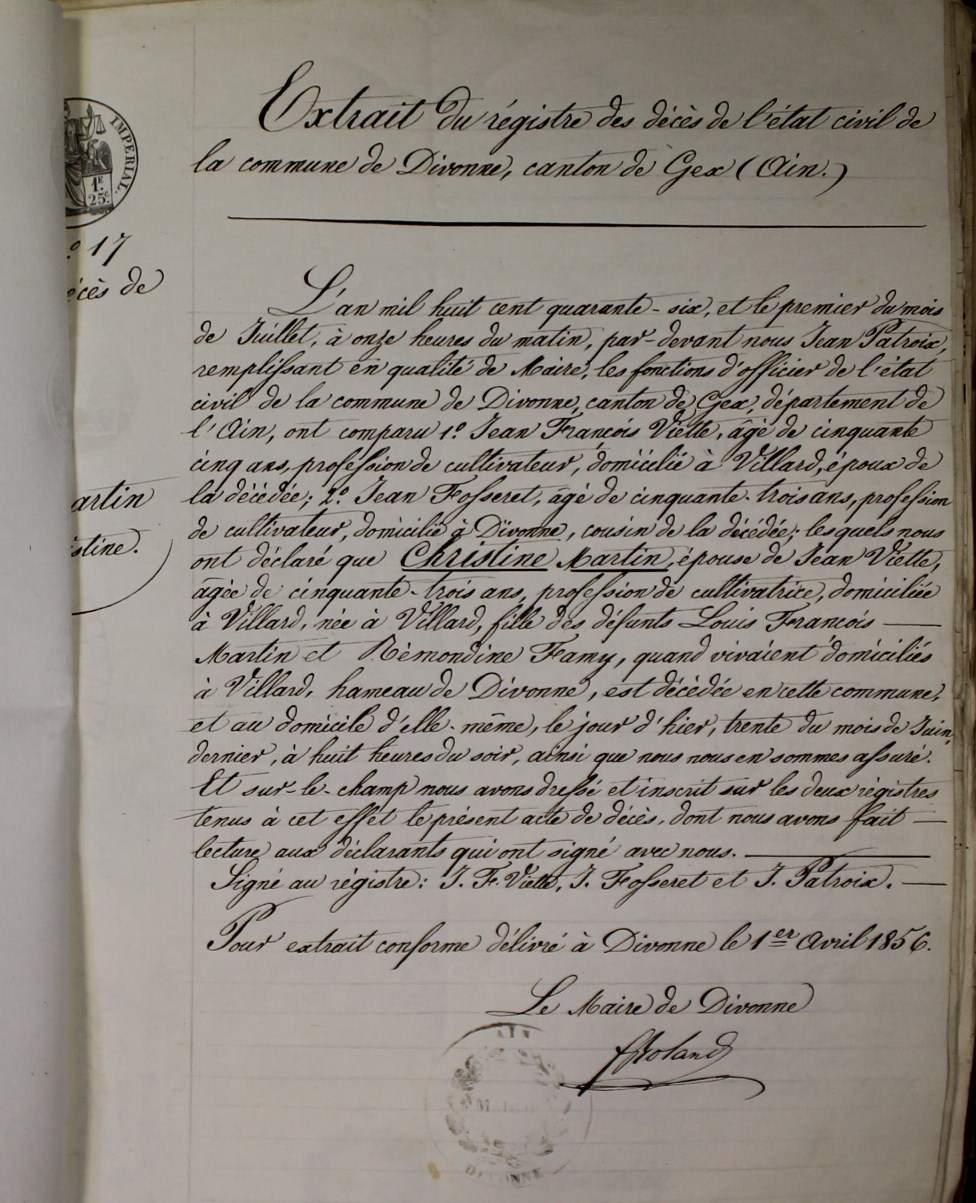 Extrait du régistre des décès de l'état civil de
la commune de Divonne, canton de Gex (Ain.)
IMPERIAL.
1F.
25c.
° 17
écès de
artin
stine.
L'an mil huit cent quarante-six, et le premier du mois
de Juillet, à onze heures du matin, par-devant nous Jean Patroix,
remplissant en qualité de Maire, les fonctions d'officier de l'état
civil de la commune de Divonne, canton de Gex, département de
l'Ain, ont comparu 1° Jean François Viette, âgé de cinquante
cinq ans, profession de cultivateur, domicilié à Villard, époux de
la décédée; 2° Jean Fosseret, âgé de cinquante-trois ans, profession
de cultivateur, domicilié à Divonne, cousin de la décédée; lesquels nous
ont déclaré que Christine Martin, épouse de Jean Viette,
âgée de cinquante-trois ans, profession de cultivatrice, domiciliée
à Villard, née à Villard, fille des défunts Louis François
Martin et Rémondine Famy, quand vivaient domiciliés
à Villard, hameau de Divonne, est décédée en cette commune,
et au domicile d'elle-même, le jour d'hier, trente du mois de Juin,
dernier, à huit heures du soir, ainsi que nous nous en sommes assuré.
Et sur-le-champ nous avons dressé et inscrit sur les deux régistres
tenus à cet effet le présent acte de décès, dont nous avons fait
lecture aux déclarants qui ont signé avec nous.
Signé au régistre: J. F. Viette, J. Fosseret et J. Patroix.
Pour extrait conforme délivré à Divonne le 1er Avril 1856.
Le Maire de Divonne
Roland
AIN
MAIRIE
DIVONNE